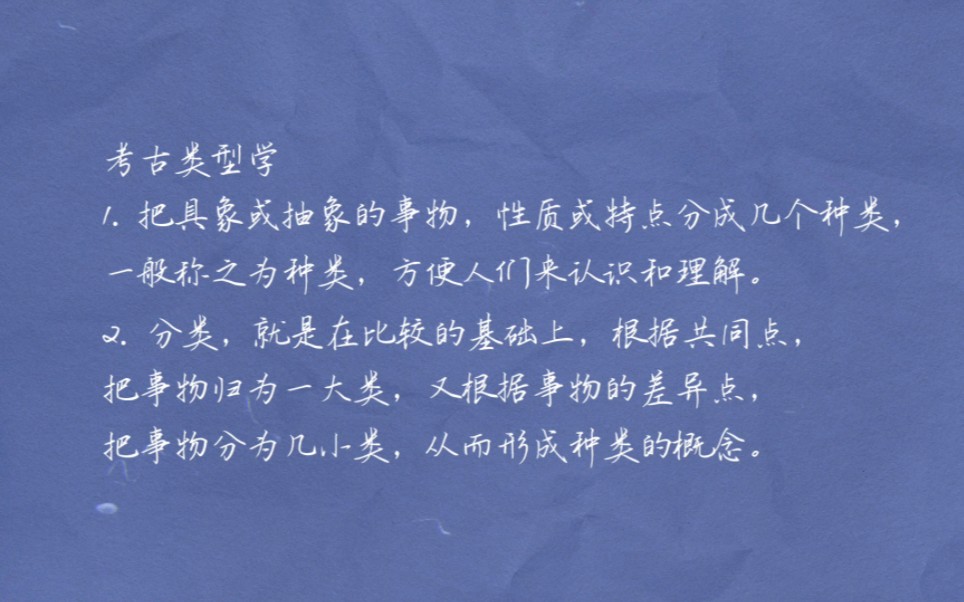 考古类型学
1. 把具象或抽象的事物，性质或特点分成几个种类，
一般称之为种类，方便人们来认识和理解。
2. 分类，就是在比较的基础上，根据共同点，
把事物归为一大类，又根据事物的差异点，
把事物分为几小类，从而形成种类的概念。